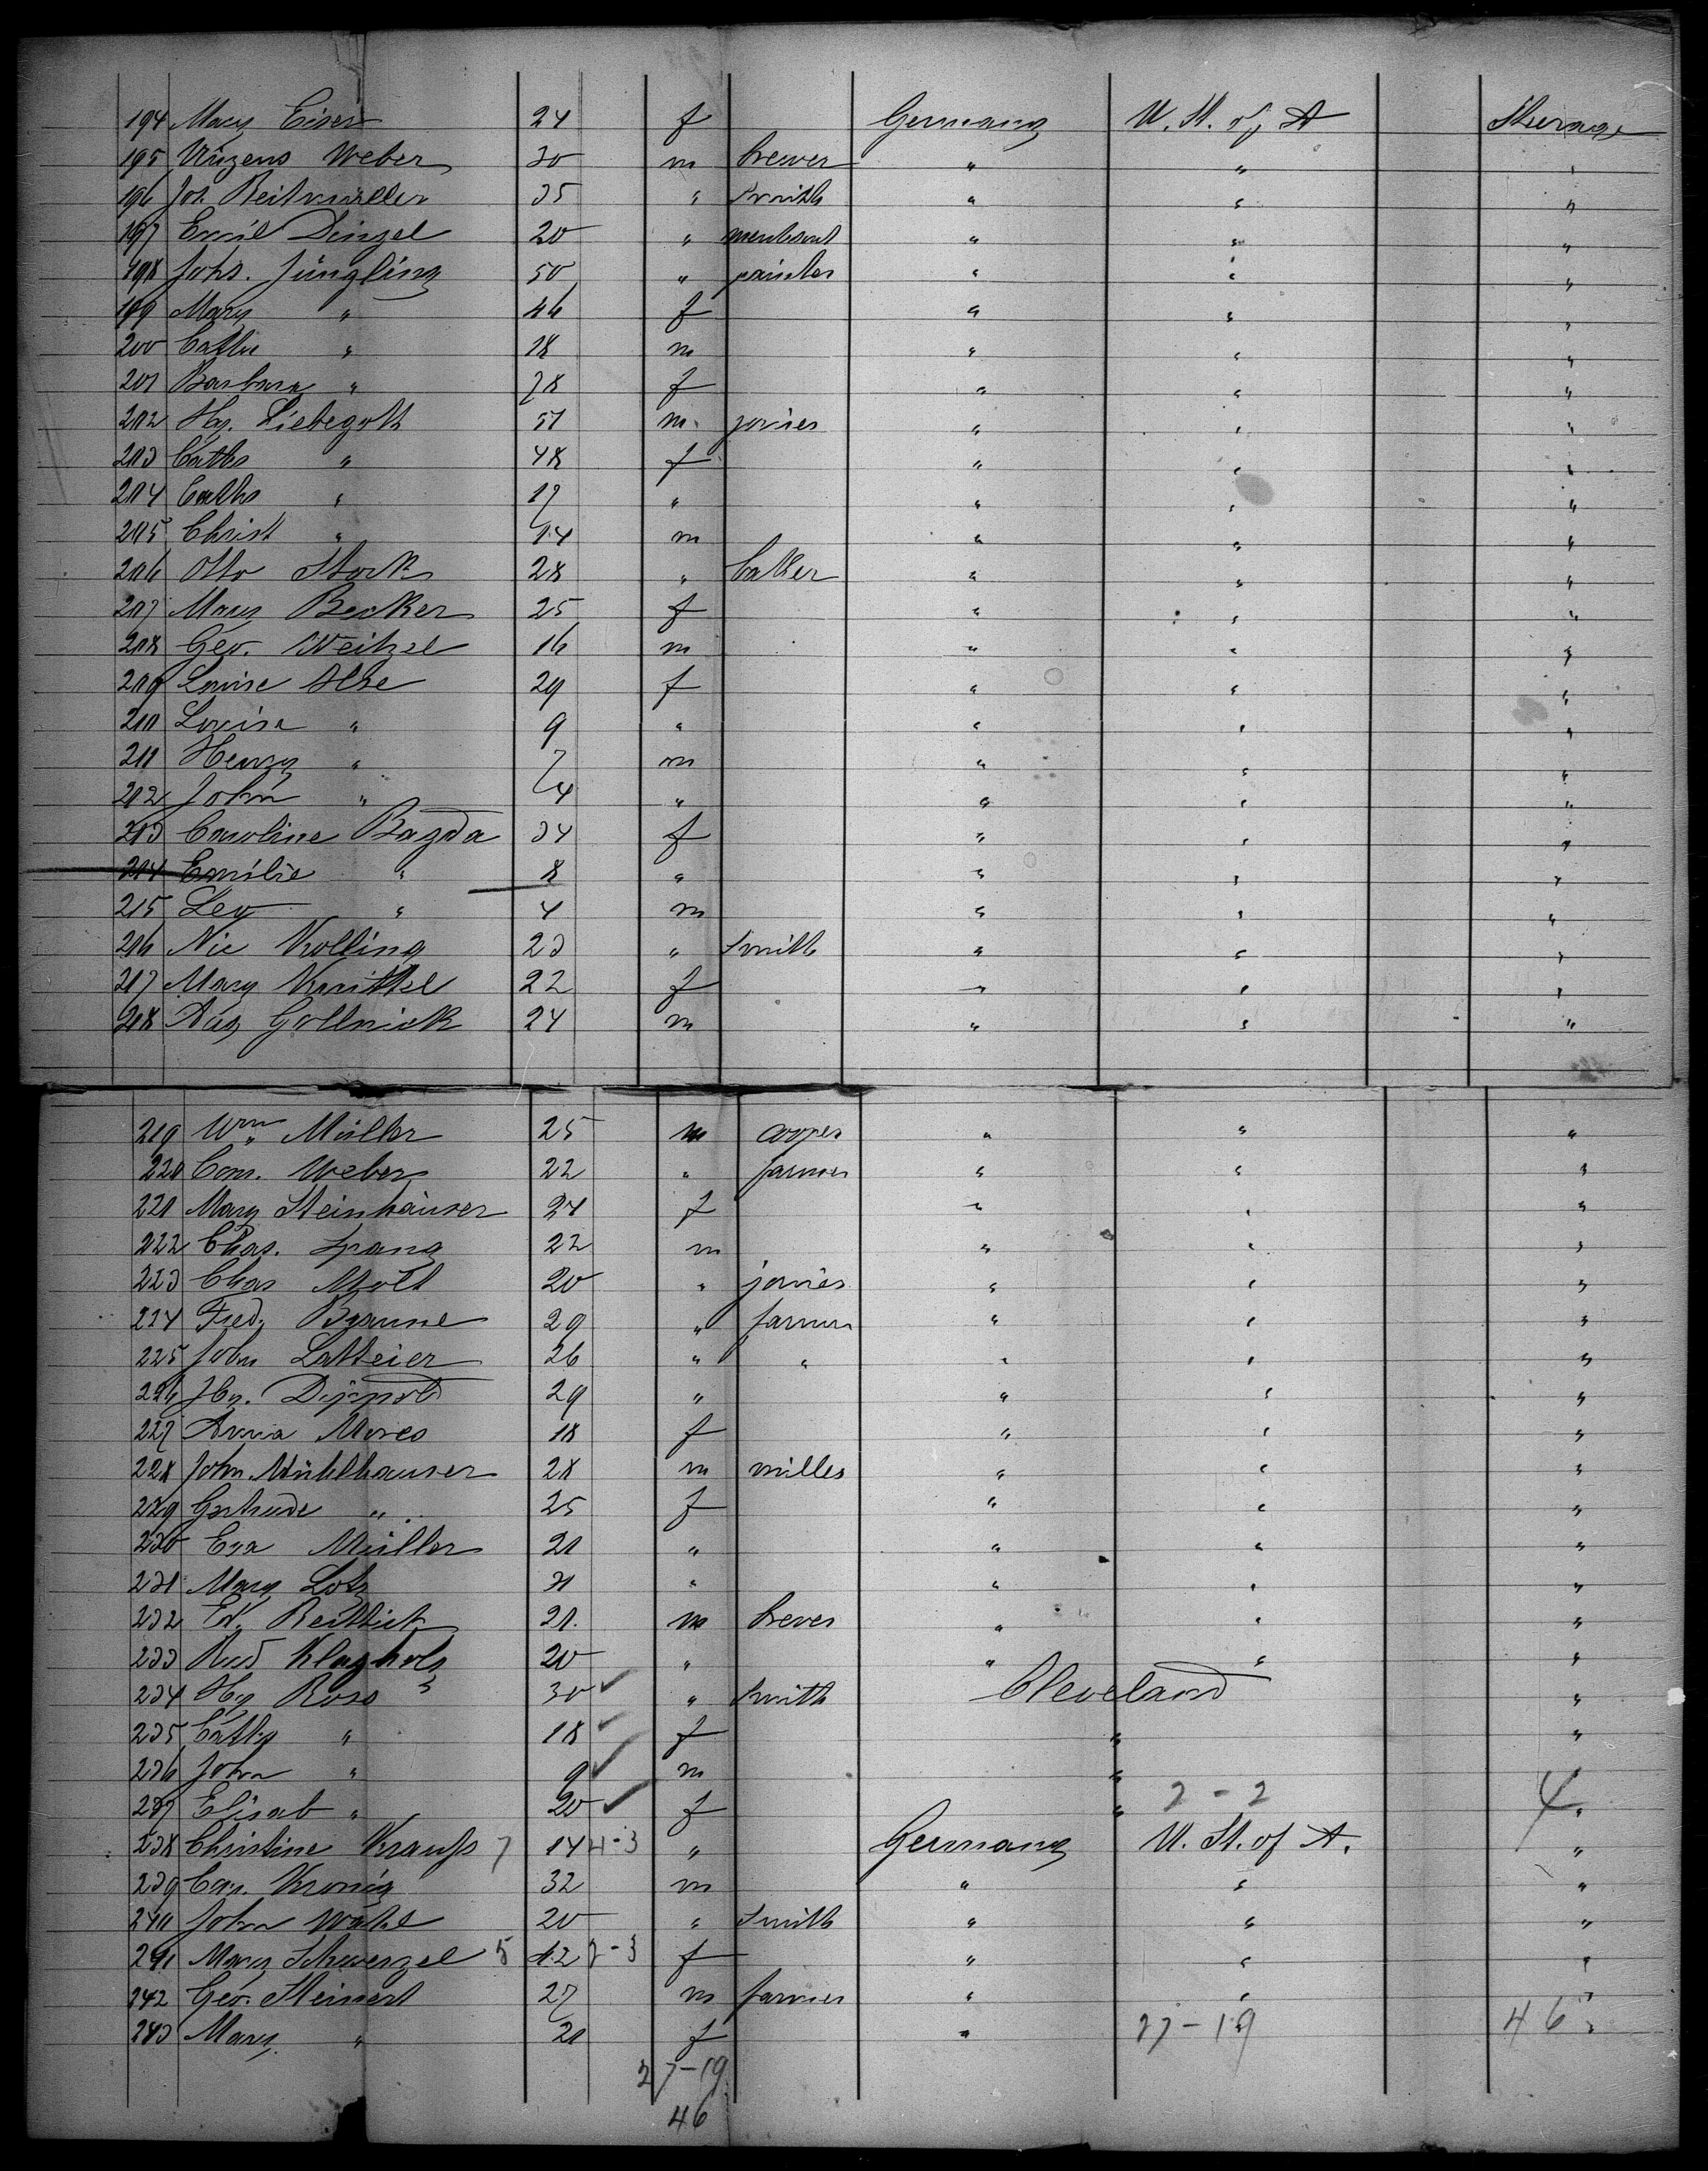 194 Mary Eiser 24 f Germany U. St. of A Steerage
195 Vinzens Weber 30 m brewer " " "
196 Joh Reitmüller 35 " smith " " "
197 Emil Dinzel 20 " merchant " " "
198 Johs. Jüngling 50 " painter " " "
199 Mary " 46 f " " "
200 Cathr " 18 m " " "
201 Barbara " 78 f " " "
202 Hy. Liebegott 51 m joiner " " "
203 Cathr " 48 f " " "
204 Cathr " 17 " " " "
205 Christ " 14 m " " "
206 Otto Stork 28 " baker " " "
207 Mary Becker 25 f " " "
208 Geo. Weitzel 16 m " " "
209 Louise 29 f " " "
210 Louisa " 9 " " " "
211 Henry " 7 m " " "
212 John " 4 " " " "
213 Caroline Bazda 34 f " " "
214 Emilie " 8 " " " "
215 Leo " 4 m " " "
216 Nic Kolling 23 " smith " " "
217 Mary Knittel 22 f " " "
218 Aug Gollnick 24 m " " "
219 Wm Müller 25 m cooper " " "
220 Con. Weber 22 " farmer " " "
221 Mary Steinhäuser 24 f " " "
222 Chas. Spang 22 m " " "
223 Chas Moll 20 " joiner " " "
224 Fred. Braune 29 " farmer " " "
225 John Latteier 26 " " " " "
226 Hy. Dippold 29 " " " "
227 Anna Mores 18 f " " "
228 John Mühlhauser 28 m miller " " "
229 Gertrude " 25 f " " "
230 Eva Müller 21 " " " "
231 Mary Lotz 31 " " " "
232 Ed. Reittich 21. m brewer " " "
233 Rud Klagholz 20 " " " "
234 Hy Ross 3 30 " smith Cleveland "
235 Cathr " 18 f " "
236 John " 9 m " "
237 Elisab " 20 f " 2-2 4 "
238 Christine Krauss 7 14 4-3 " Germany U. St. of A. "
239 Car. Kronig 32 m " " "
240 John Wahl 20 " smith " " "
241 Mary Schwenzel 5 12 2-3 f " " "
242 Geo. Steinert 27 m farmer " " "
243 Mary " 21 f " 27-19 46 "
27-19
46